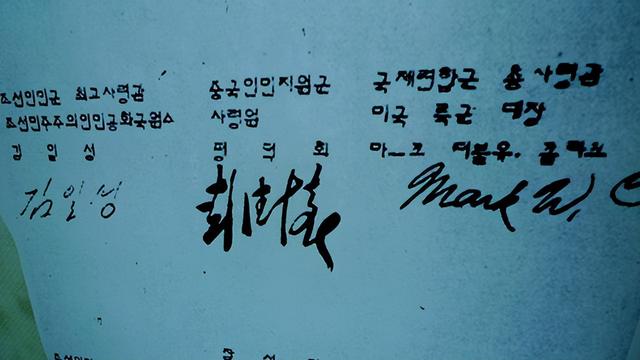 조선인민군 최고사령관
조선민주주의인민공화국원수
김 일 성
김일성
중국인민지원군
사령원
팽 덕 회
彭德懷
국제련합군 총사령관
미국 륙군 대장
마ㅡ크 더블유. 클라크
Mark W. C
조선인민